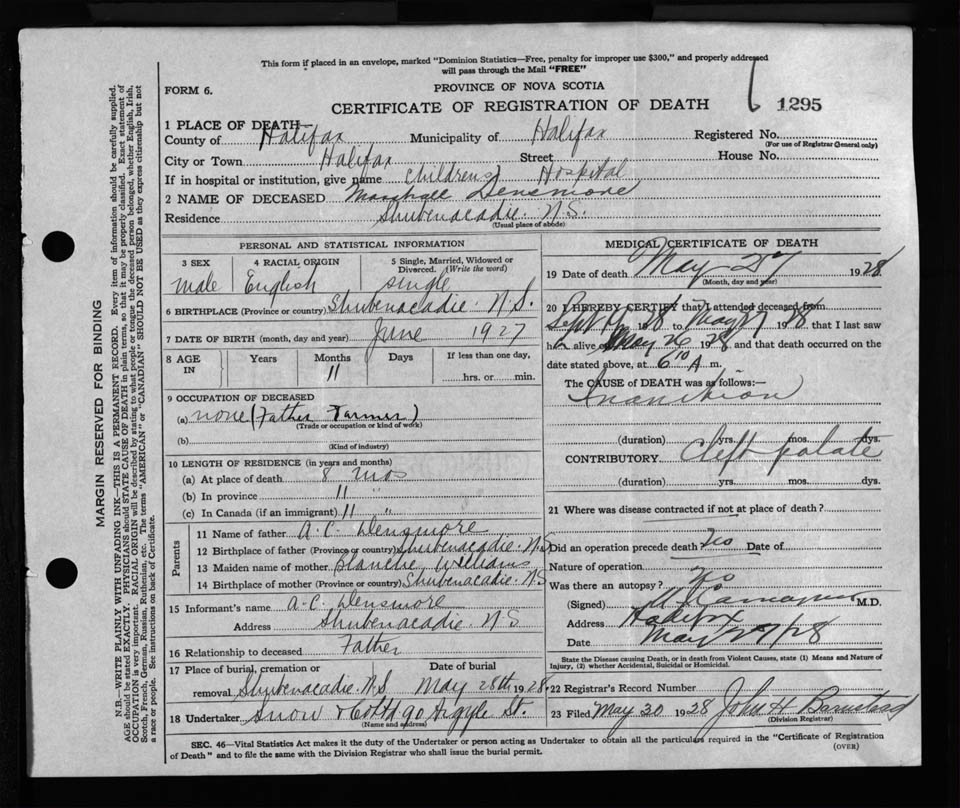 This form if placed in an envelope, marked "Dominion Statistics—Free, penalty for improper use $300," and properly addressed
will pass through the Mail "FREE"
FORM 6.
PROVINCE OF NOVA SCOTIA
CERTIFICATE OF REGISTRATION OF DEATH
1295
1 PLACE OF DEATH—
County of Halifax Municipality of Halifax Registered No.
(For use of Registrar General only)
City or Town Halifax Street House No.
If in hospital or institution, give name Childrens Hospital
2 NAME OF DECEASED Marshall Densmore
Residence Shubenacadie. N.S.
(Usual place of abode)
PERSONAL AND STATISTICAL INFORMATION
3 SEX 4 RACIAL ORIGIN 5 Single, Married, Widowed or
Divorced. (Write the word)
male English single
6 BIRTHPLACE (Province or country) Shubenacadie. N.S.
7 DATE OF BIRTH (month, day and year) June 1927
8 AGE IN Years Months Days If less than one day,
11 hrs. or min.
9 OCCUPATION OF DECEASED
(a) none (Father Farmer)
(Trade or occupation or kind of work)
(b)
(Kind of industry)
10 LENGTH OF RESIDENCE (in years and months)
(a) At place of death 8 mos
(b) In province 11 "
(c) In Canada (if an immigrant) 11 "
Parents
11 Name of father A.C. Densmore
12 Birthplace of father (Province or country) Shubenacadie. N.S
13 Maiden name of mother Blanche Williams
14 Birthplace of mother (Province or country) Shubenacadie. N.S
15 Informant's name A.C. Densmore
Address Shubenacadie. N.S
16 Relationship to deceased Father
17 Place of burial, cremation or Date of burial
removal Shubenacadie. N.S May 28th 1928
18 Undertaker Snow & Co Ltd 90 Argyle St.
(Name and address)
MEDICAL CERTIFICATE OF DEATH
19 Date of death May 27 1928
(Month, day and year)
20 I HEREBY CERTIFY that I attended deceased from
Sept 192 to May 27 1928 that I last saw
h alive on May 26 1928 and that death occurred on the
date stated above, at 6 10 A m.
The CAUSE OF DEATH was as follows:—
Inanition
(duration) yrs. mos. dys.
CONTRIBUTORY Cleft palate
(duration) yrs. mos. dys.
21 Where was disease contracted if not at place of death?
Did an operation precede death Date of
Nature of operation
Was there an autopsy? No
(Signed) M.D.
Address Halifax
Date May 27/28
State the Disease causing Death, or in death from Violent Causes, state (1) Means and Nature of
Injury, (2) whether Accidental, Suicidal or Homicidal.
22 Registrar's Record Number
23 Filed May 30 1928 John H
(Division Registrar)
SEC. 46—Vital Statistics Act makes it the duty of the Undertaker or person acting as Undertaker to obtain all the particulars required in the "Certificate of Registration
of Death" and to file the same with the Division Registrar who shall issue the burial permit.
(OVER)
MARGIN RESERVED FOR BINDING
N.B.—WRITE PLAINLY WITH UNFADING INK—THIS IS A PERMANENT RECORD. Every item of information should be carefully supplied.
AGE should be stated EXACTLY. PHYSICIANS should STATE CAUSE OF DEATH in plain terms, so that it may be properly classified. Exact statement of
OCCUPATION is very important. RACIAL ORIGIN will be described by stating to what people or tongue the deceased person belonged, whether English, Irish,
Scotch, French, German, Russian, Ruthenian, etc. The terms "AMERICAN" or "CANADIAN" SHOULD NOT BE USED as they express citizenship but not
a race or people. See instructions on back of Certificate.